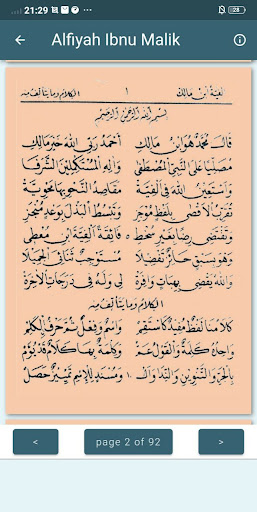 21:29 28
Alfiyah Ibnu Malik
الفية ابن مالك ١ الكلام وما يتألف منه
بسم الله الرحمن الرحيم
قَالَ مُحَمَّدٌ هُوَ ابْنُ مَالِكِ أَحْمَدُ رَبِّي اللهَ خَيْرَ مَالِكِ
مُصَلِّيًا عَلَى النَّبِيِّ الْمُصْطَفَى وَآلِهِ الْمُسْتَكْمِلِينَ الشَّرَفَا
وَأَسْتَعِينُ اللهَ فِي أَلْفِيَّةْ مَقَاصِدُ النَّحْوِ بِهَا مَحْوِيَّةْ
تُقَرِّبُ الْأَقْصَى بِلَفْظٍ مُوجَزِ وَتَبْسُطُ الْبَذْلَ بِوَعْدٍ مُنْجَزِ
وَتَقْتَضِي رِضًا بِغَيْرِ سُخْطِ فَائِقَةً أَلْفِيَّةَ ابْنِ مُعْطِي
وَهُوَ بِسَبْقٍ حَائِزٌ تَفْضِيلَا مُسْتَوْجِبٌ ثَنَائِيَ الْجَمِيلَا
وَاللهُ يَقْضِي بِهِبَاتٍ وَافِرَةْ لِي وَلَهُ فِي دَرَجَاتِ الْآخِرَةْ
الكلام وما يتألف منه
كَلَامُنَا لَفْظٌ مُفِيدٌ كَاسْتَقِمْ وَاسْمٌ وَفِعْلٌ ثُمَّ حَرْفٌ الْكَلِمْ
وَاحِدُهُ كَلِمَةٌ وَالْقَوْلُ عَمْ وَكِلْمَةٌ بِهَا كَلَامٌ قَدْ يُؤَمْ
بِالْجَرِّ وَالتَّنْوِينِ وَالنِّدَا وَأَلْ ١٠ وَمُسْنَدٍ لِلِاسْمِ تَمْيِيزٌ حَصَلْ
< page 2 of 92 >